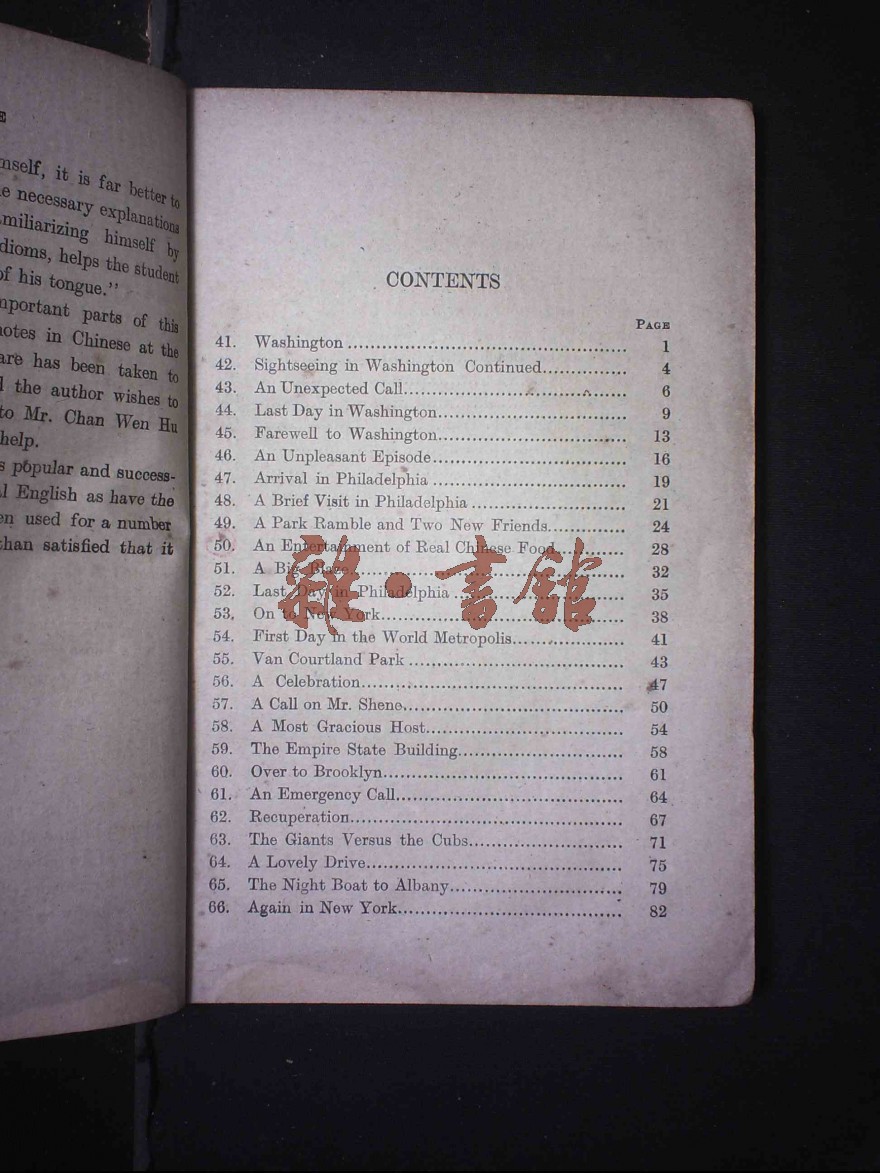 E
mself, it is far better to
e necessary explanations
miliarizing himself by
dioms, helps the student
of his tongue."
mportant parts of this
notes in Chinese at the
are has been taken to
l the author wishes to
to Mr. Chan Wen Hu
help.
s popular and success-
l English as have the
en used for a number
than satisfied that it
CONTENTS
PAGE
41. Washington ........ 1
42. Sightseeing in Washington Continued........ 4
43. An Unexpected Call........ 6
44. Last Day in Washington........ 9
45. Farewell to Washington........ 13
46. An Unpleasant Episode........ 16
47. Arrival in Philadelphia ........ 19
48. A Brief Visit in Philadelphia ........ 21
49. A Park Ramble and Two New Friends........ 24
50. An Entertainment of Real Chinese Food........ 28
51. A Big Blaze........ 32
52. Last Day in Philadelphia ........ 35
53. On to New York........ 38
54. First Day in the World Metropolis........ 41
55. Van Courtland Park ........ 43
56. A Celebration........ 47
57. A Call on Mr. Shene........ 50
58. A Most Gracious Host........ 54
59. The Empire State Building........ 58
60. Over to Brooklyn........ 61
61. An Emergency Call........ 64
62. Recuperation........ 67
63. The Giants Versus the Cubs........ 71
64. A Lovely Drive........ 75
65. The Night Boat to Albany........ 79
66. Again in New York........ 82
雜·書館